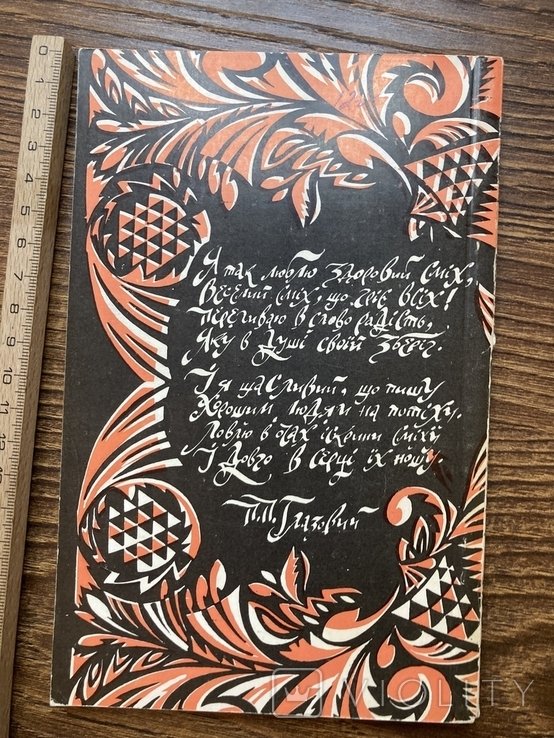 Я так люблю здоровий сміх,
Веселий сміх, що гріє всіх!
Переливаю в слово радість,
Яку в душі своїй зберіг.
І я щасливий, що пишу
Хорошим людям на потіху.
Ловлю в очах іскрини сміху
І довго в серці їх ношу.
П.П. Глазовий
0 1 2 3 4 5 6 7 8 9 10 11
VIOLITY